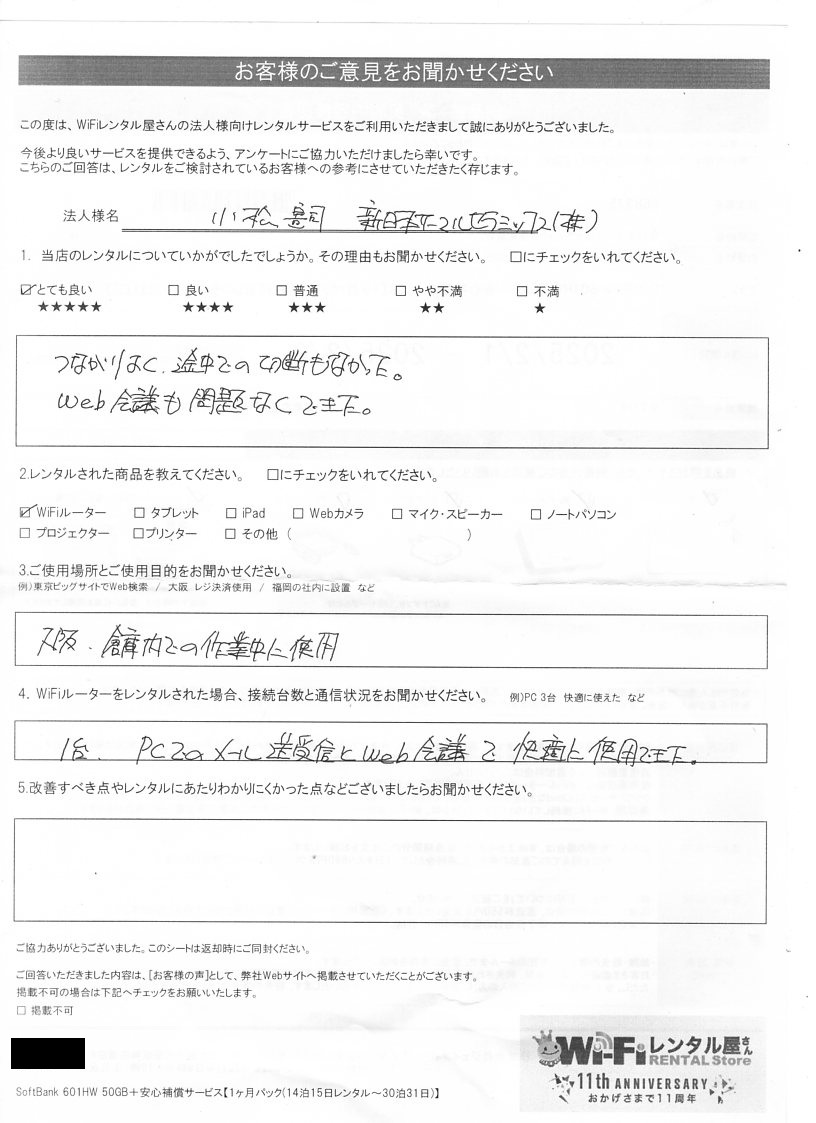 お客様のご意見をお聞かせください
この度は、WiFiレンタル屋さんの法人様向けレンタルサービスをご利用いただきまして誠にありがとうございました。
今後より良いサービスを提供できるよう、アンケートにご協力いただけましたら幸いです。
こちらのご回答は、レンタルをご検討されているお客様への参考にさせていただきたく存じます。
法人様名 小松 喜司 新日本サーマルセラミックス(株)
1. 当店のレンタルについていかがでしたでしょうか。その理由もお聞かせください。 □にチェックをいれてください。
☑とても良い □ 良い □ 普通 □ やや不満 □ 不満
★★★★★ ★★★★ ★★★ ★★ ★
つながりよく、途中での切断もなかった。
Web会議も問題なくできた。
2.レンタルされた商品を教えてください。 □にチェックをいれてください。
☑ WiFiルーター □ タブレット □ iPad □ Webカメラ □ マイク・スピーカー □ ノートパソコン
□ プロジェクター □プリンター □ その他 ( )
3.ご使用場所とご使用目的をお聞かせください。
例)東京ビッグサイトでWeb検索 / 大阪 レジ決済使用 / 福岡の社内に設置 など
大阪、倉庫内での作業中に使用
4. WiFiルーターをレンタルされた場合、接続台数と通信状況をお聞かせください。 例)PC 3台 快適に使えた など
1台、PCでのメール送受信とWeb会議で快適に使用できた。
5.改善すべき点やレンタルにあたりわかりにくかった点などございましたらお聞かせください。
ご協力ありがとうございました。このシートは返却時にご同封ください。
ご回答いただきました内容は、[お客様の声]として、弊社Webサイトへ掲載させていただくことがございます。
掲載不可の場合は下記へチェックをお願いいたします。
□ 掲載不可
Wi-Fiレンタル屋さん
RENTAL Store
11th ANNIVERSARY
おかげさまで11周年
SoftBank 601HW 50GB+安心補償サービス【1ヶ月パック(14泊15日レンタル～30泊31日)】